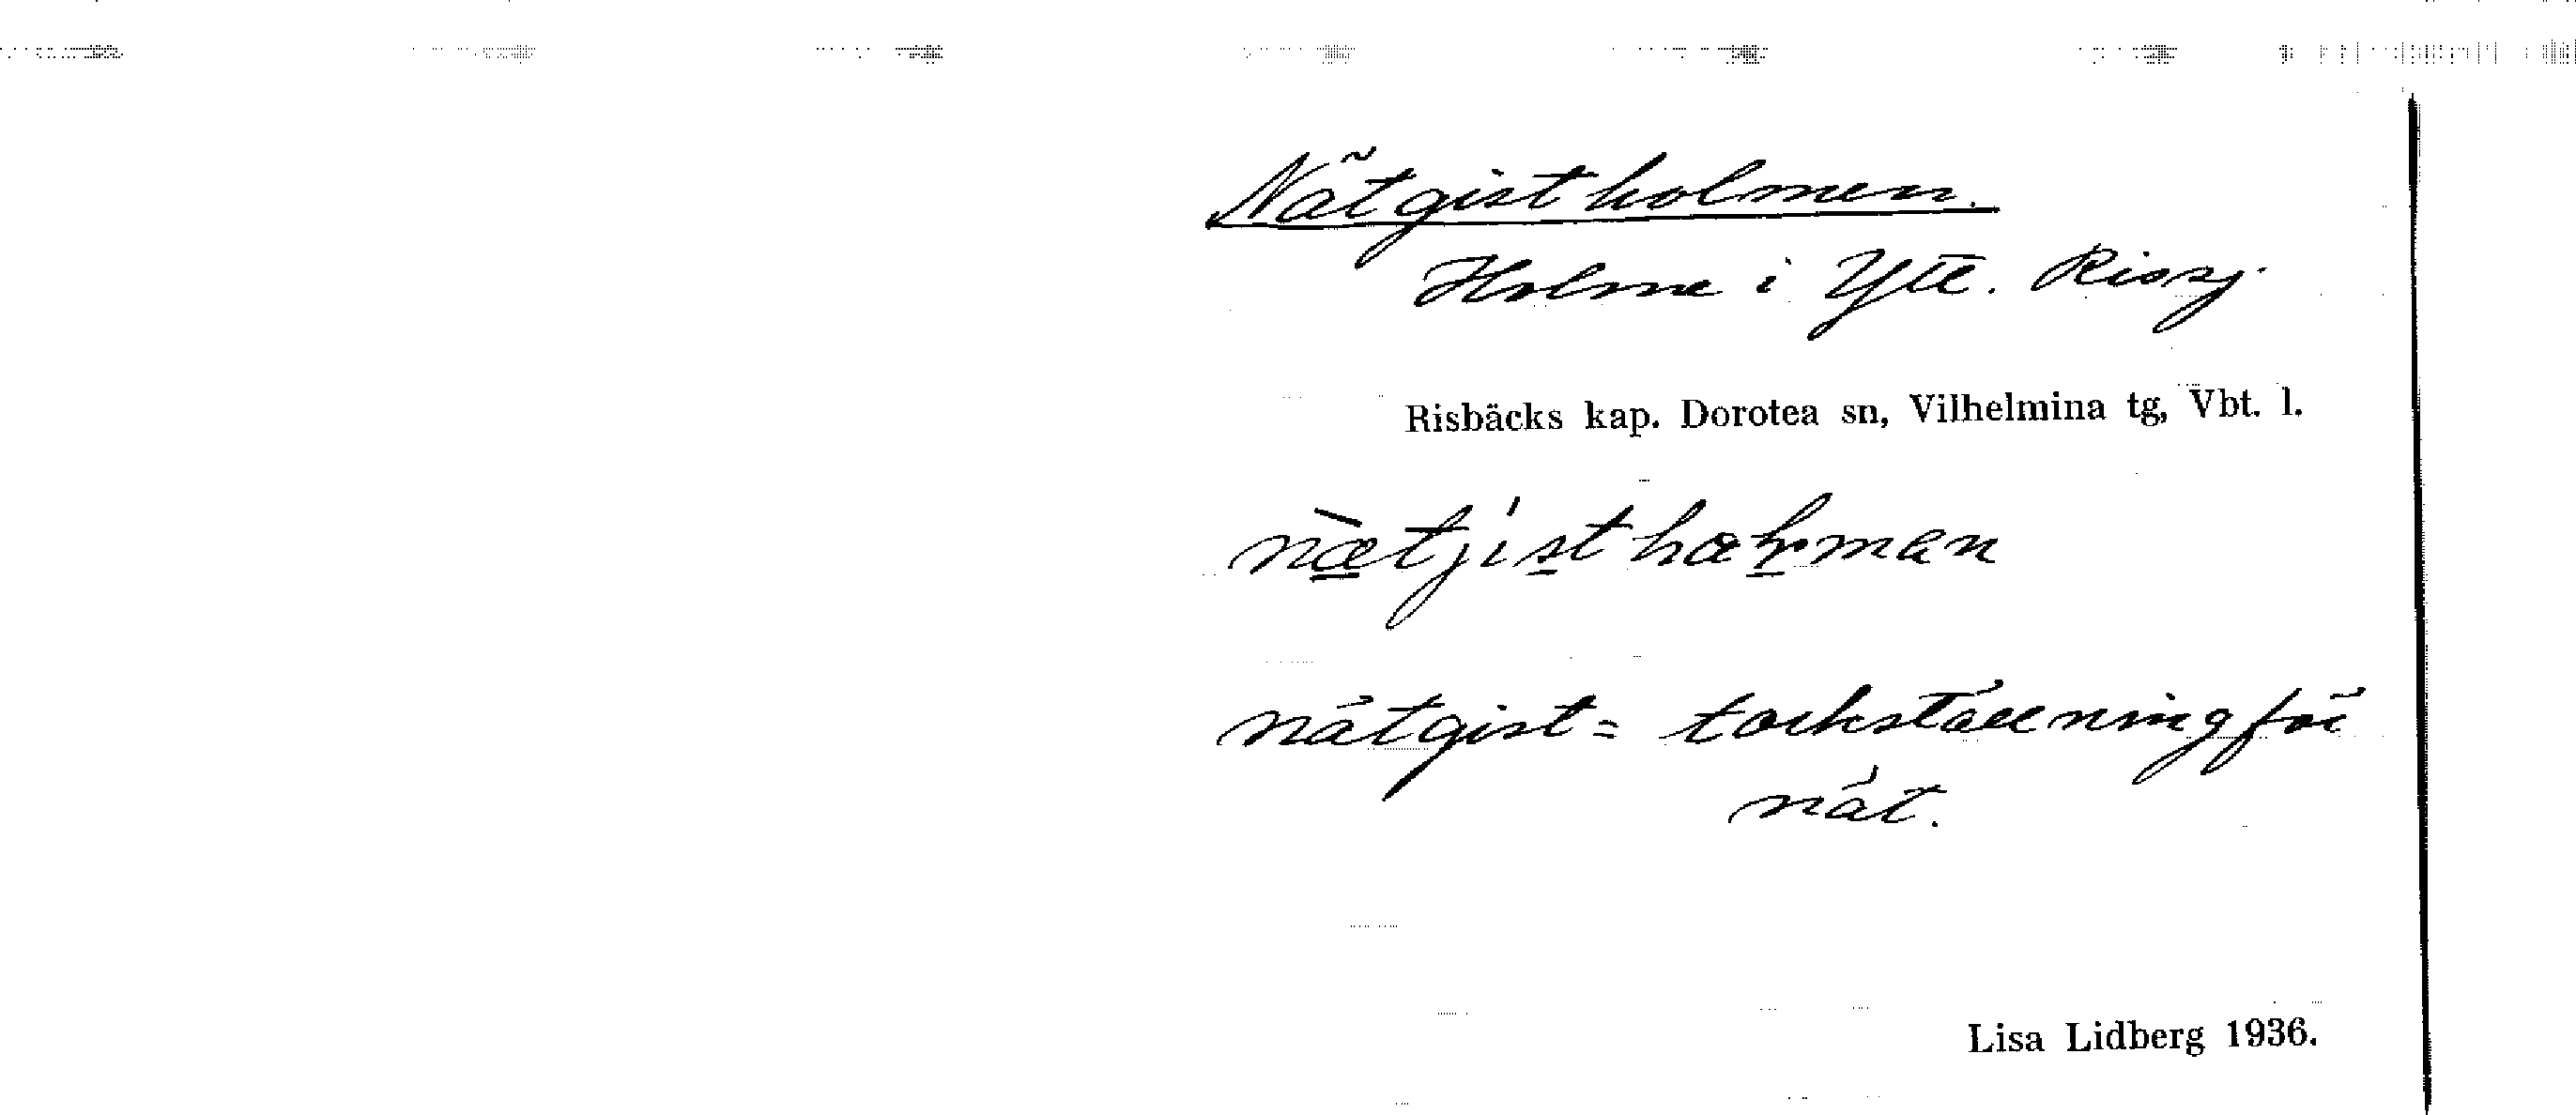 Nätgistholmen.
Holme i Ytt. Rissj.
Risbäcks kap. Dorotea sn, Vilhelmina tg, Vbt. l.
nätgist = torkställning för
nät.
Lisa Lidberg 1936.